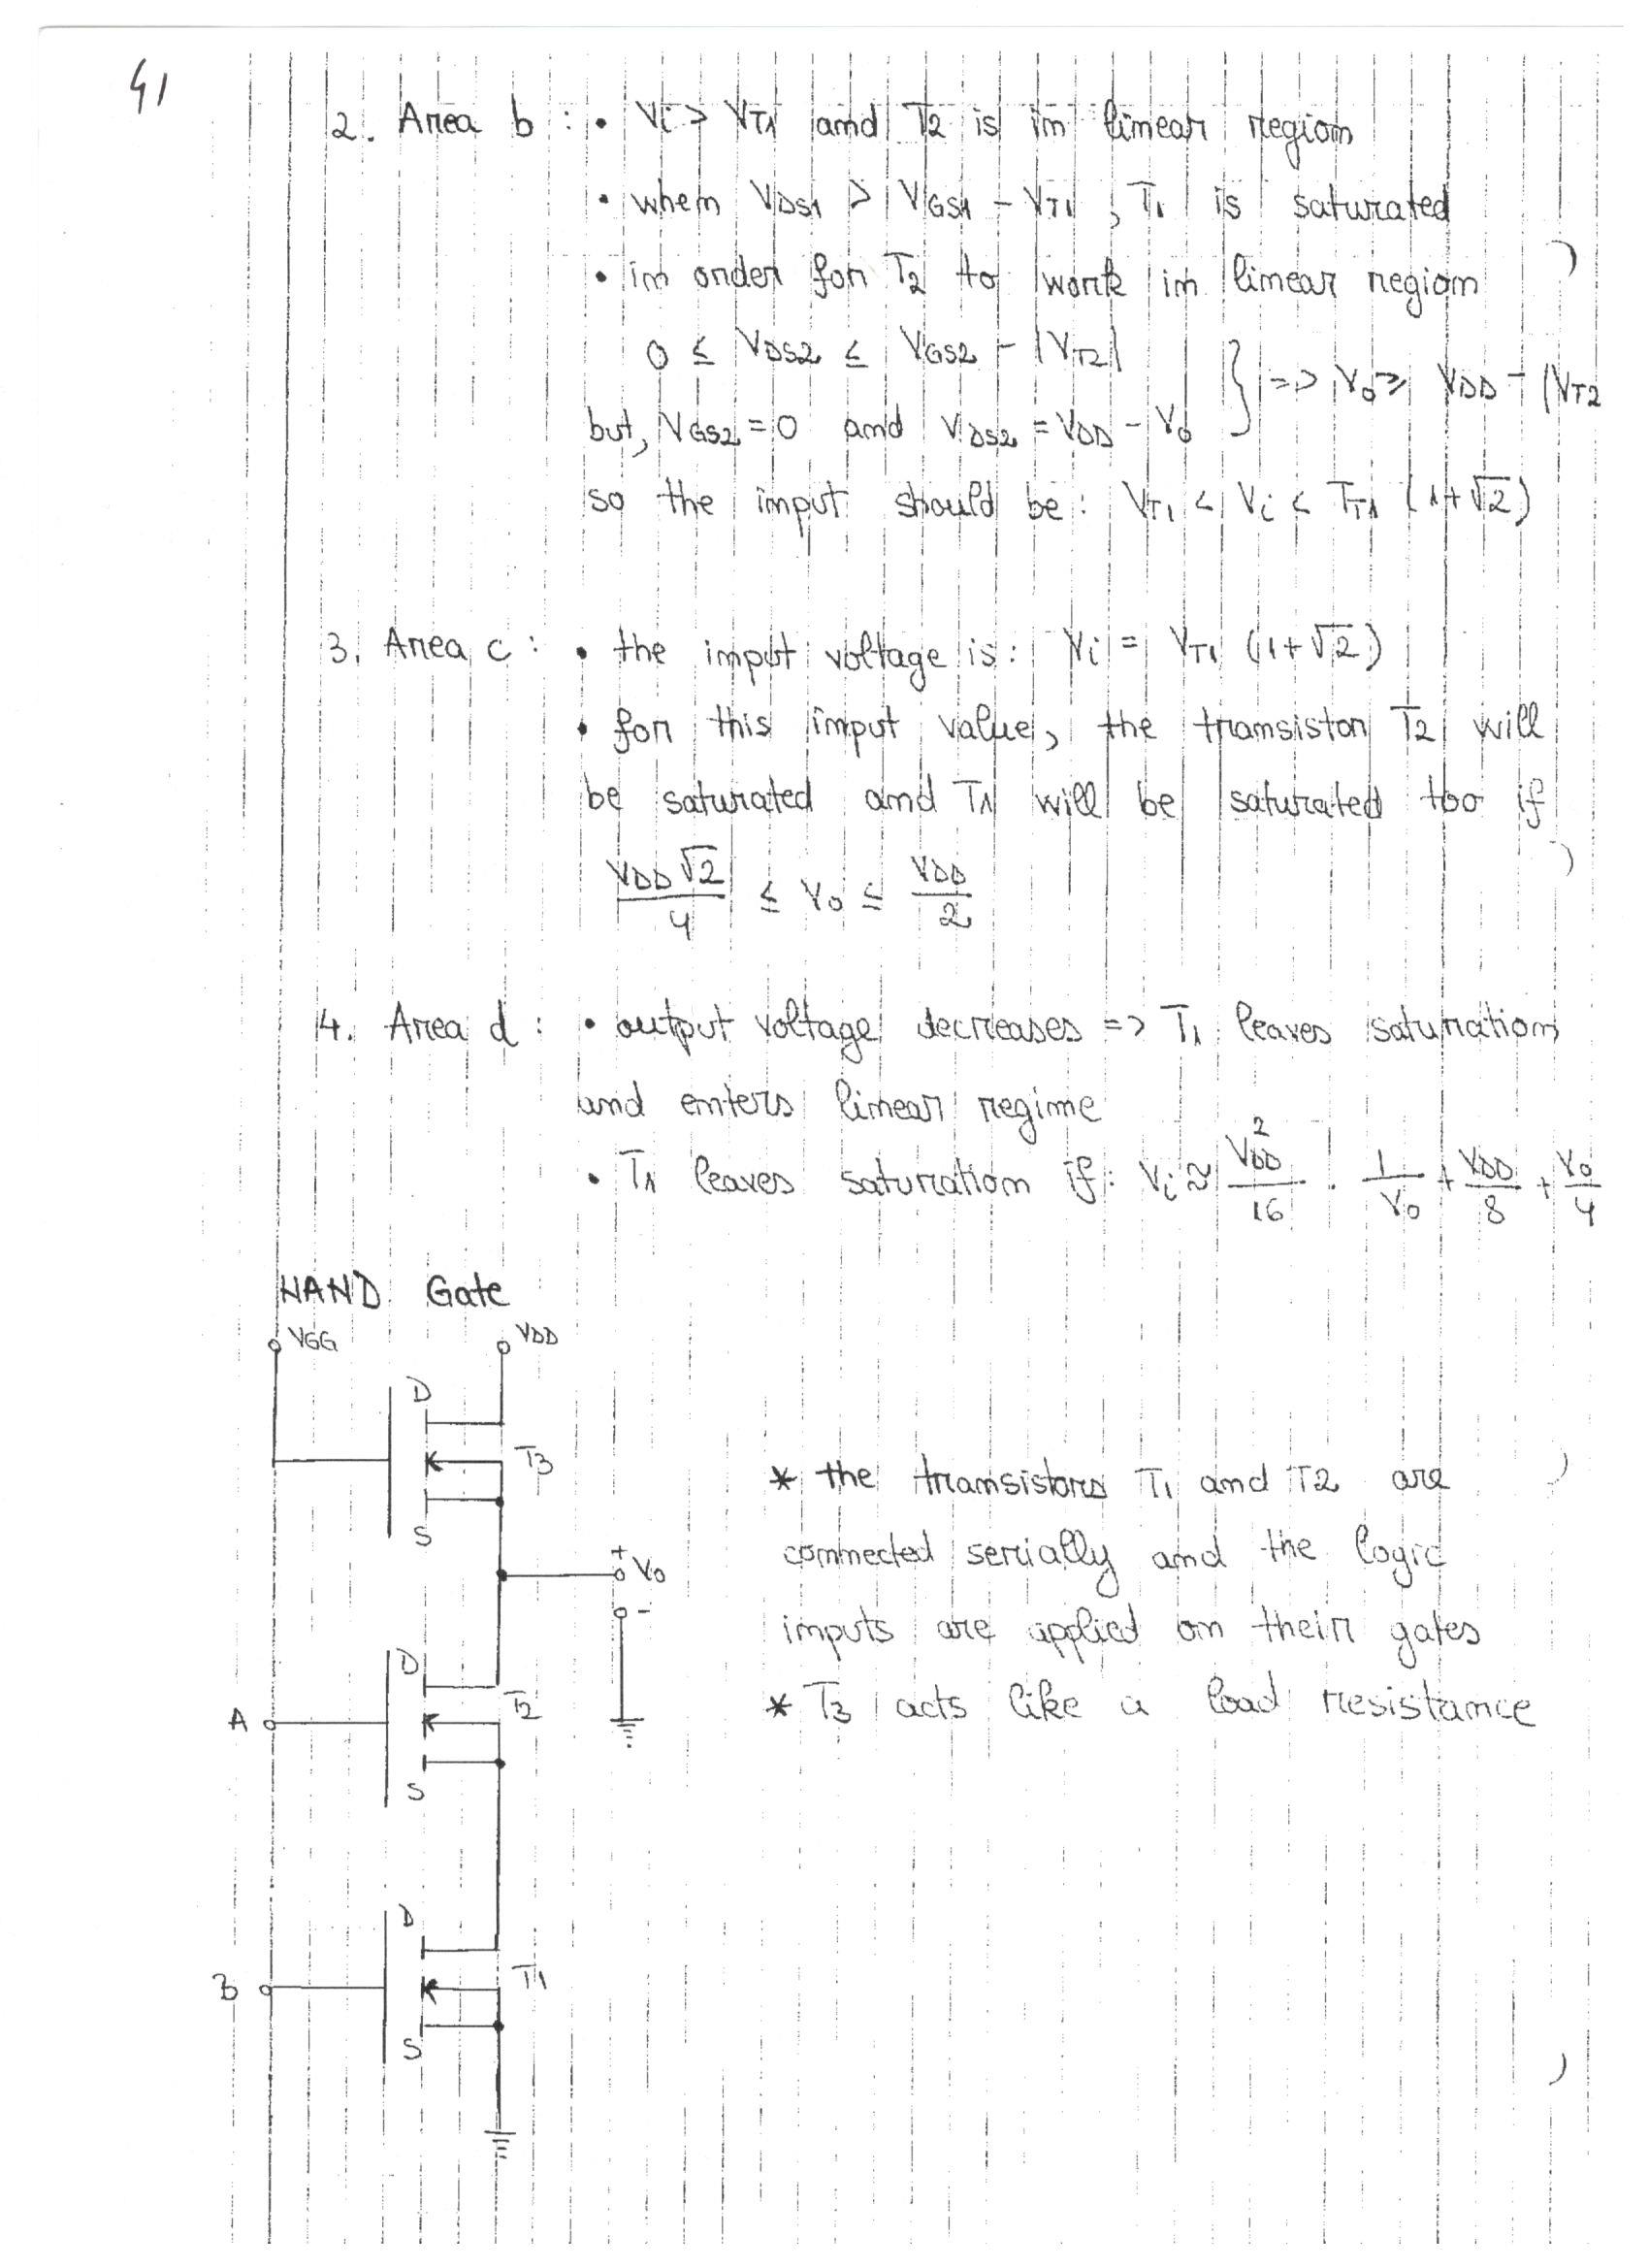 41
2. Area b : • Vi > VT1 and T2 is in linear region
• when VDS1 > VGS1 - VT1 , T1 is saturated
• in order for T2 to work in linear region
0 ≤ VDS2 ≤ VGS2 - |VT2|
but, VGS2 = 0 and VDS2 = VDD - V0 } => V0 ≥ VDD - |VT2
so the input should be : VT1 < Vi < TT1 (1+√2)
3. Area c : • the input voltage is : Vi = VT1 (1+√2)
• for this input value, the transistor T2 will
be saturated and T1 will be saturated too if
VDD√2/4 ≤ V0 ≤ VDD/2
4. Area d : • output voltage decreases => T1 leaves saturation
and enters linear regime
• T1 leaves saturation if : Vi ≈ VDD²/16 · 1/V0 + VDD/8 + V0/4
NAND Gate
VGG VDD
D
T3
S
+
V0
-
D
T2
A
S
D
T1
B
S
* the transistors T1 and T2 are
connected serially and the logic
inputs are applied on their gates
* T3 acts like a load resistance